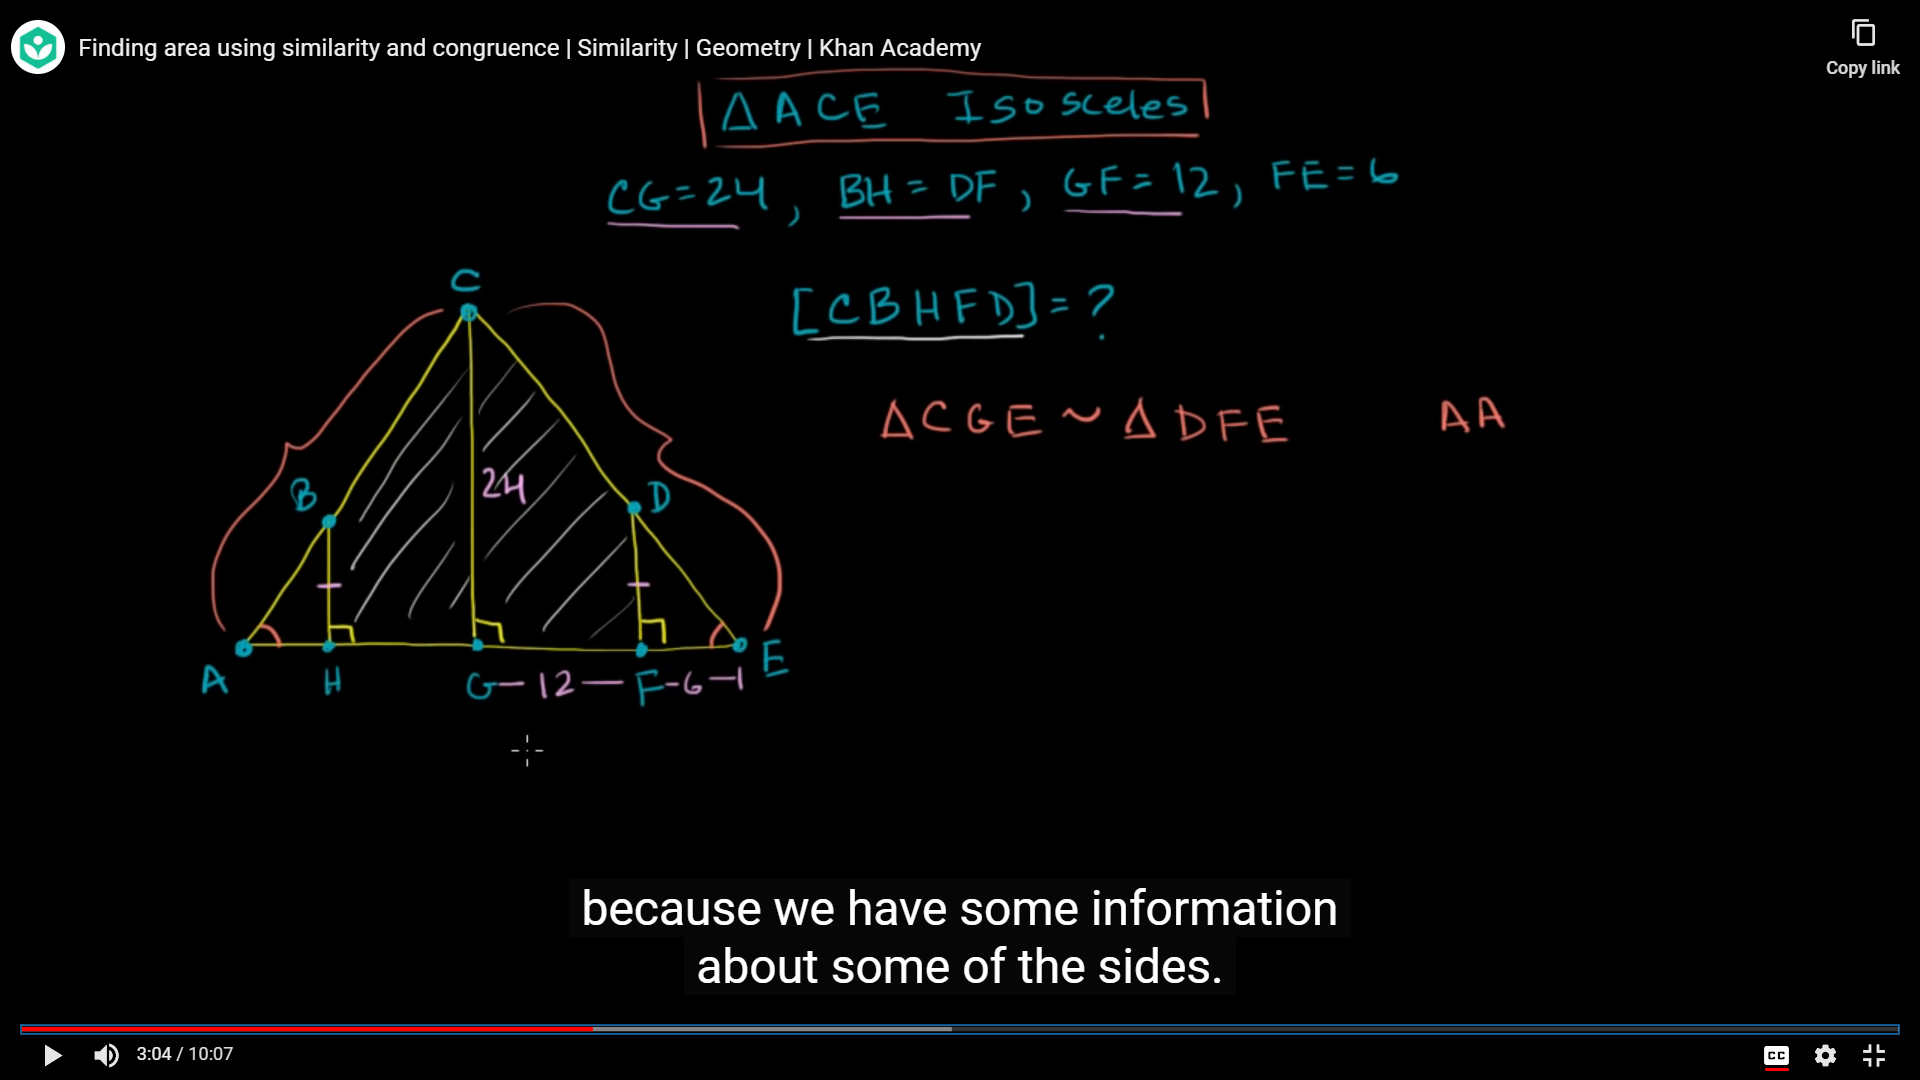 Finding area using similarity and congruence | Similarity | Geometry | Khan Academy
Copy link
Δ A C E Isosceles
CG = 24, BH = DF, GF = 12, FE = 6
[CBHFD] = ?
Δ C G E ~ Δ D F E AA
C
B
24
D
A
H
G - 12 - F - 6 - E
because we have some information
about some of the sides.
3:04 / 10:07
CC